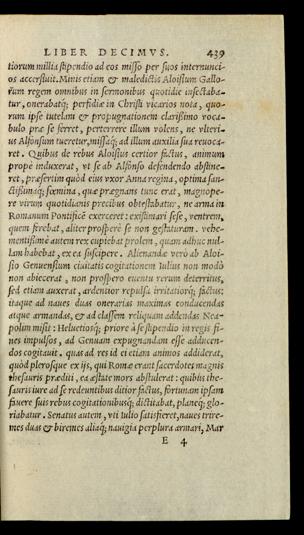 LIBER DECIMVS. 439
tiorum millia stipendio ad eos misso per suos internunci-
os accersiuit. Minis etiam & maledictis Aloisium Gallo-
rum regem omnibus in sermonibus quotidie insectaba-
tur, onerabatq́; perfidiæ in Christi vicarios nota, quo-
rum ipse tutelam & propugnationem clarissimo voca-
bulo præ se ferret, perterrere illum volens, ne vlteri-
us Alfonsum tueretur, missaq́; ad illum auxilia sua reuoca-
ret. Quibus de rebus Aloisius certior factus, animum
propè induxerat, vt se ab Alfonso defendendo abstine-
ret, præsertim quòd eius vxor Anna regina, optima san-
ctissimaq́; fœmina, quæ prægnans tunc erat, magnope-
re virum quotidianis precibus obtestabatur, ne arma in
Romanum Pontificē exerceret: existimari sese, ventrem,
quem ferebat, aliter prosperè se non gestaturam. vehe-
mentissimè autem rex cupiebat prolem, quam adhuc nul-
lam habebat, ex ea suscipere. Alienandæ verò ab Aloi-
sio Genuensium ciuitatis cogitationem Iulius non modò
non abiecerat, non prospero euentu rerum deterritus,
sed etiam auxerat, ardentior repulsa irritatiorq́; factus;
itaque ad naues duas onerarias maximas conducendas
atque armandas, & ad classem reliquam addendas Nea-
polim misit: Heluetiosq́; priore à se stipendio in regis fi-
nes impulsos, ad Genuam expugnandam esse adducen-
dos cogitauit. quas ad res id ei etiam animos addiderat,
quòd plerosque ex ijs, qui Romæ erant sacerdotes magnis
thesauris præditi, ea æstate mors abstulerat: quibus the-
sauris iure ad se redeuntibus ditior factus, fortunam ipsam
fauere suis rebus cogitationibusq́; dictitabat, planeq́; glo-
riabatur. Senatus autem, vti Iulio satisfieret, naues trire-
mes duas & biremes aliaq́; nauigia perplura armari, Mar
E 4